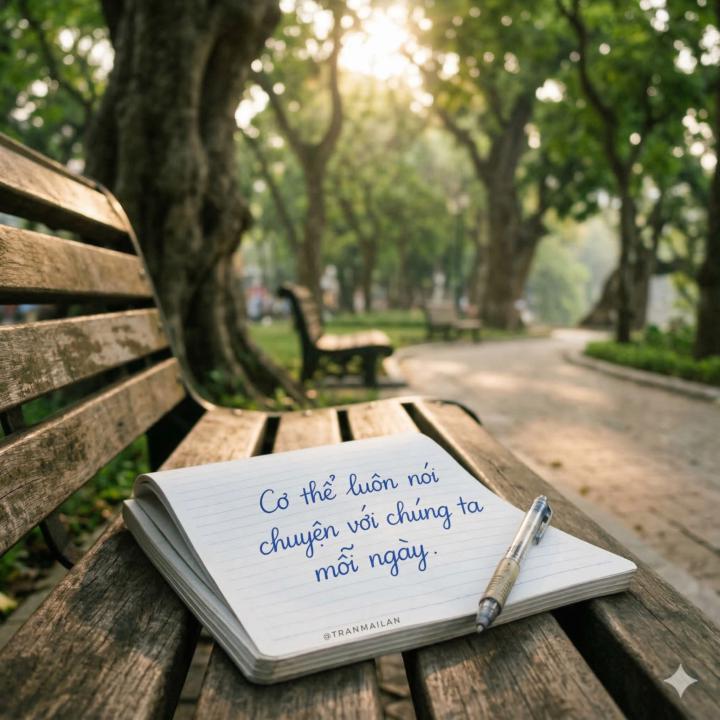 Cơ thể luôn nói
chuyện với chúng ta
mỗi ngày.
@TRANMAILAN